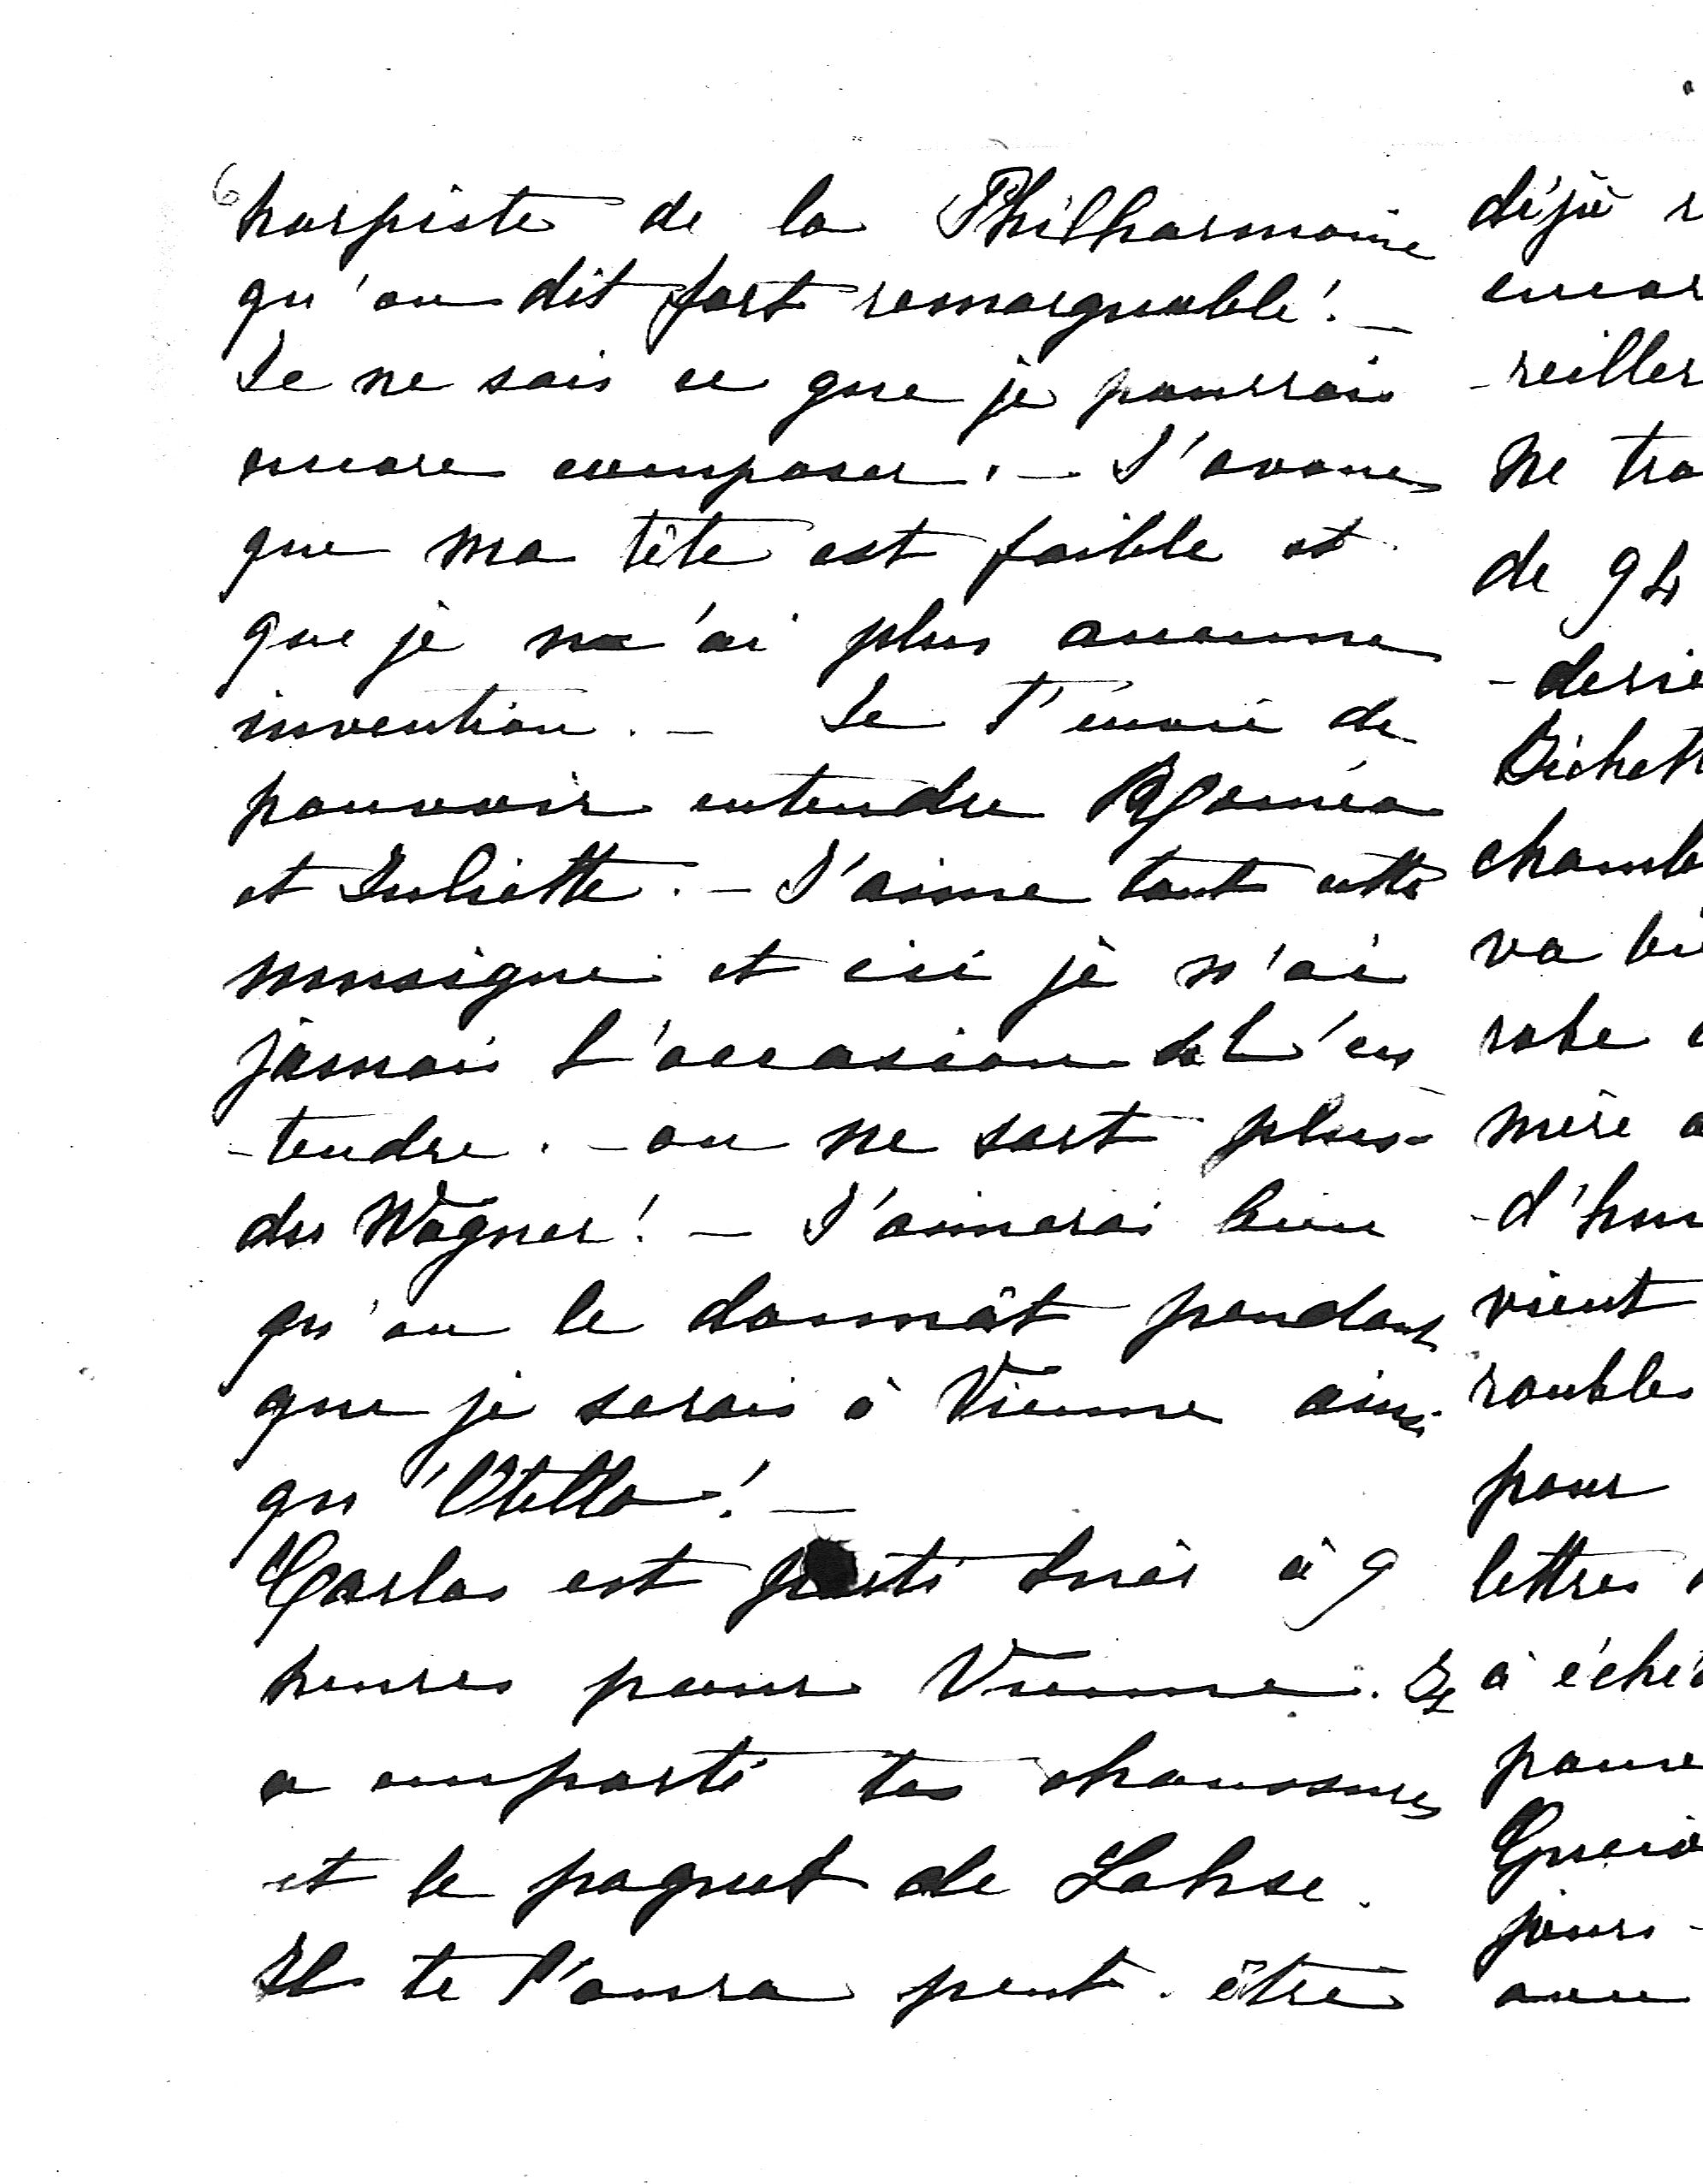 6
harpiste de la Philharmonie
qu'on dit fort remarquable!_
Je ne sais ce que je pourrais
encore composer. - J'avoue
que ma tête est faible et
que je n'ai plus aucune
invention. - Je t'envie de
pouvoir entendre Roméo
et Juliette. - J'aime tant cette
musique et ici je n'ai
jamais l'occasion de l'en
-tendre. - on ne sort plus
du Wagner! - J'aimerai bien
qu'on le donnât pendant
que je serais à Vienne ainsi
qu'Otello! _
Carlos est parti hier à 9
heures pour Vienne. Il
a emporté tes chaussures
et le paquet de Lahse.
Il te l'aura peut-être
déjà r
encor
-reiller
ne tro
de 94
-derie
chamb
va bi
robe
mère a
d'hu
vient
roubles
pour
lettres
à éché
jours -